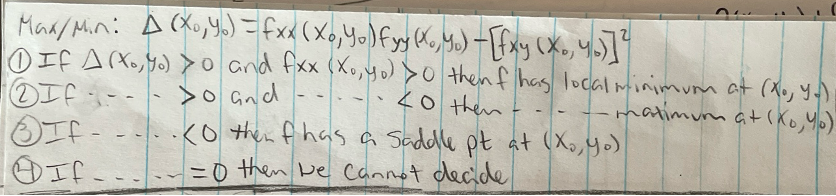 Max/Min: Δ(x₀,y₀) = fxx(x₀,y₀)fyy(x₀,y₀) - [fxy(x₀,y₀)]²
① If Δ(x₀,y₀) > 0 and fxx(x₀,y₀) > 0 then f has local minimum at (x₀,y₀)
② If - - - - > 0 and - - - - - < 0 then - - - - maximum at (x₀,y₀)
③ If - - - - - < 0 then f has a saddle pt at (x₀,y₀)
④ If - - - - - = 0 then we cannot decide